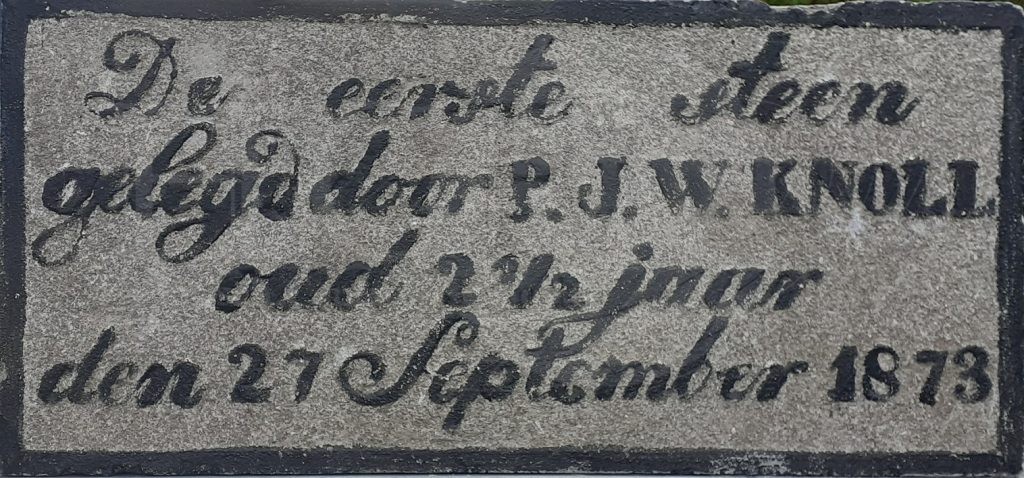 De eerste steen
gelegd door P. J. W. KNOLL
oud 2 1/2 jaar
den 27 September 1873